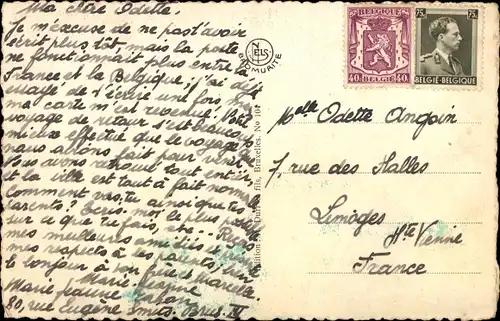 Ma chère Odette.
Je m'excuse de ne pas t'avoir
écrit plus tôt, mais la poste
ne fonctionnait plus entre la
France et la Belgique; j'ai dé
essayé de t'écrire une fois,
ma carte m'est revenue! Notre
voyage de retour s'est beaucoup
mieux effectué que le voyage
nous avions fait pour venir.
Nous avons retrouvé tout entier,
et la ville est tout à fait normale
Comment vas-tu, ainsi que tes
parents? Écris-moi le plus
sur ce que tu fais, etc... Reçois
mes meilleures amitiés
mes respects à tes parents,
le bonjour à ton frère
Marie-Jeanne
Marie Jeanne
80, rue Eugène Smits. Brux. III
NELS
BELGIQUE
40c 40c
75c 75c
BELGIË-BELGIQUE
fils, Bruxelles. No 10
Melle Odette Angoin
7 rue des Halles
Limoges
Hte Vienne
France